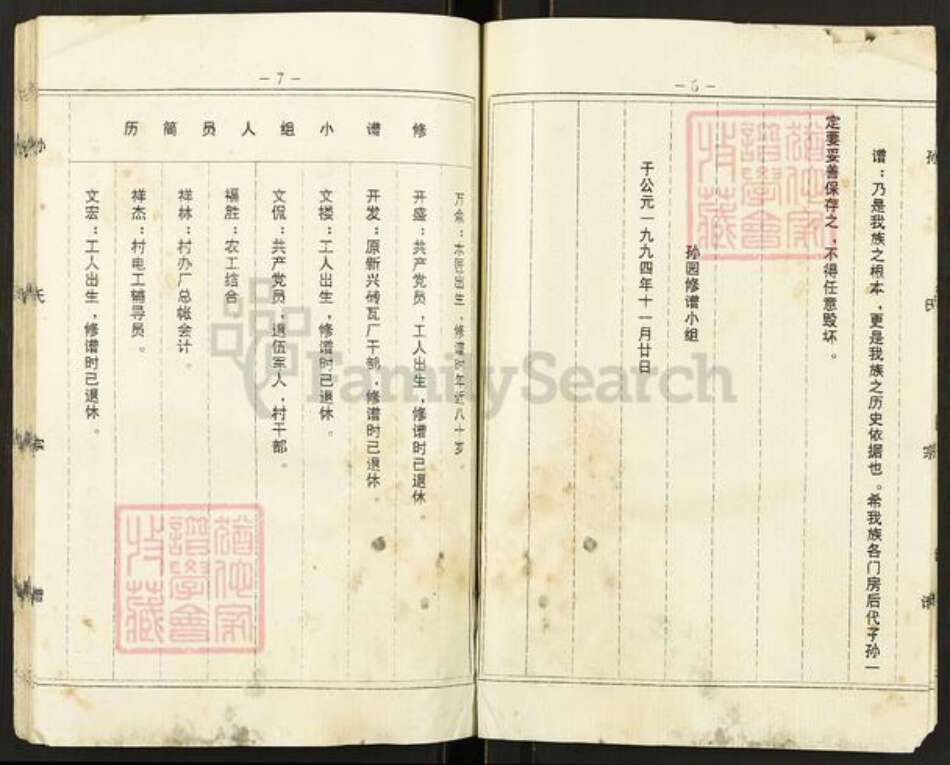 谱：乃是我族之根本，更是我族之历史依据也。希我族各门房后代子孙一
定要妥善保存之，不得任意毁坏。
孙园修谱小组
于公元一九九四年十一月廿日
—6—
孙氏宗谱
—7—
修谱小组人员简历
万金：木匠出生，修谱时年近八十岁。
开盛：共产党员，工人出生，修谱时已退休。
开发：原新兴砖瓦厂干部，修谱时已退休。
文楼：工人出生，修谱时已退休。
文侃：共产党员，退伍军人，村干部。
福胜：农工结合
祥林：村办厂总帐会计
祥杰：村电工辅导员。
文宏：工人出生，修谱时已退休。
孙氏宗谱
犹他家谱学会收藏
犹他家谱学会收藏
FamilySearch